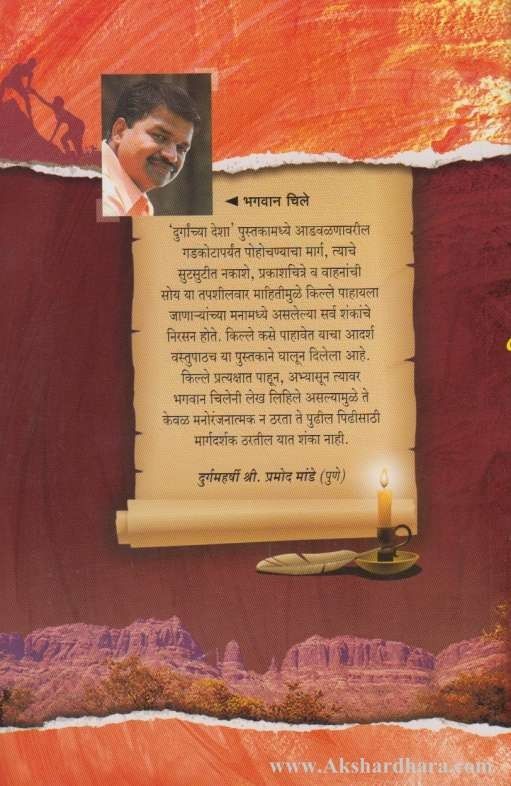 ◄ भगवान चिले
'दुर्गांच्या देशा' पुस्तकामध्ये आडवळणावरील
गडकोटापर्यंत पोहोचण्याचा मार्ग, त्याचे
सुटसुटीत नकाशे, प्रकाशचित्रे व वाहनांची
सोय या तपशीलवार माहितीमुळे किल्ले पाहायला
जाणाऱ्यांच्या मनामध्ये असलेल्या सर्व शंकांचे
निरसन होते. किल्ले कसे पाहावेत याचा आदर्श
वस्तुपाठच या पुस्तकाने घालून दिलेला आहे.
किल्ले प्रत्यक्षात पाहून, अभ्यासून त्यावर
भगवान चिलेंनी लेख लिहिले असल्यामुळे ते
केवळ मनोरंजनात्मक न ठरता ते पुढील पिढीसाठी
मार्गदर्शक ठरतील यात शंका नाही.
दुर्गमहर्षी श्री. प्रमोद मांडे (पुणे)
www.Akshardhara.com